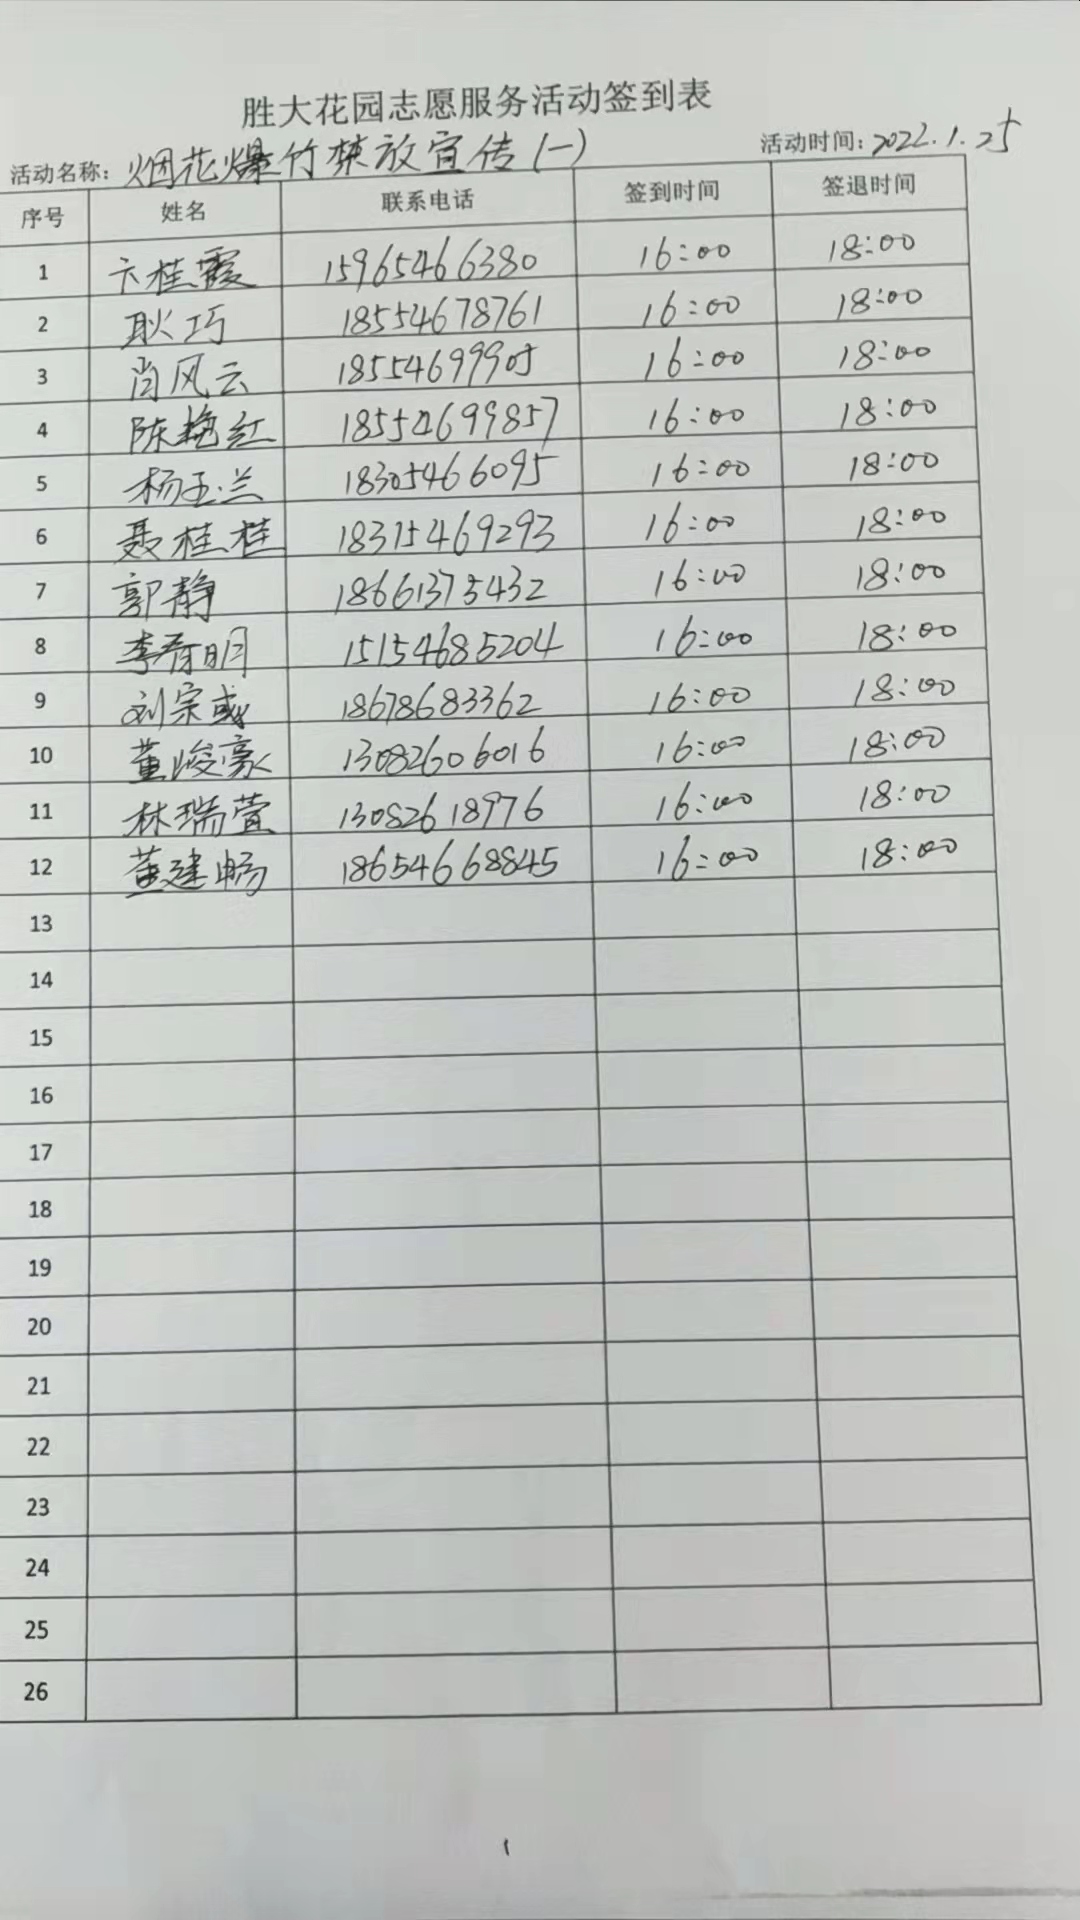 胜大花园志愿服务活动签到表
活动名称：烟花爆竹禁放宣传(一) 活动时间：2022.1.25
序号 姓名 联系电话 签到时间 签退时间
1 卞桂霞 15965466380 16:00 18:00
2 耿巧 18554678761 16:00 18:00
3 尚风云 18554699905 16:00 18:00
4 陈艳红 18554699857 16:00 18:00
5 杨玉兰 18305466095 16:00 18:00
6 聂桂桂 18315469293 16:00 18:00
7 郭静 18661375432 16:00 18:00
8 李春明 15154685204 16:00 18:00
9 刘宗彧 18678683362 16:00 18:00
10 董峻豪 13082606016 16:00 18:00
11 林瑞萱 13082618976 16:00 18:00
12 董建畅 18654668845 16:00 18:00
13
14
15
16
17
18
19
20
21
22
23
24
25
26
1